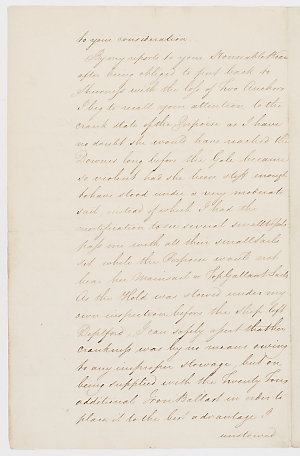 to your consideration.
By my reports to your Honorable Board
after being obliged to put back to
Sheerness with the loss of two Anchors
I beg to recall your attention to the
crank state of the Porpoise as I have
no doubt she would have reached the
Downes long before the Gale became
so violent had she been stiff enough
to have stood under a very moderate
sail, instead of which I had the
mortification to see several small vessels
pass me with all their small sails
set while the Porpoise would not
bear her Mainsail or Top Gallant Sails
As the Hold was stowed under my
own inspection before the Ship left
Deptford, I can safely assert that her
crankness was by no means owing
to any improper Stowage, but on
being supplied with the Twenty Tons
additional Iron Ballast in order to
place it to the best advantage I
unstowed